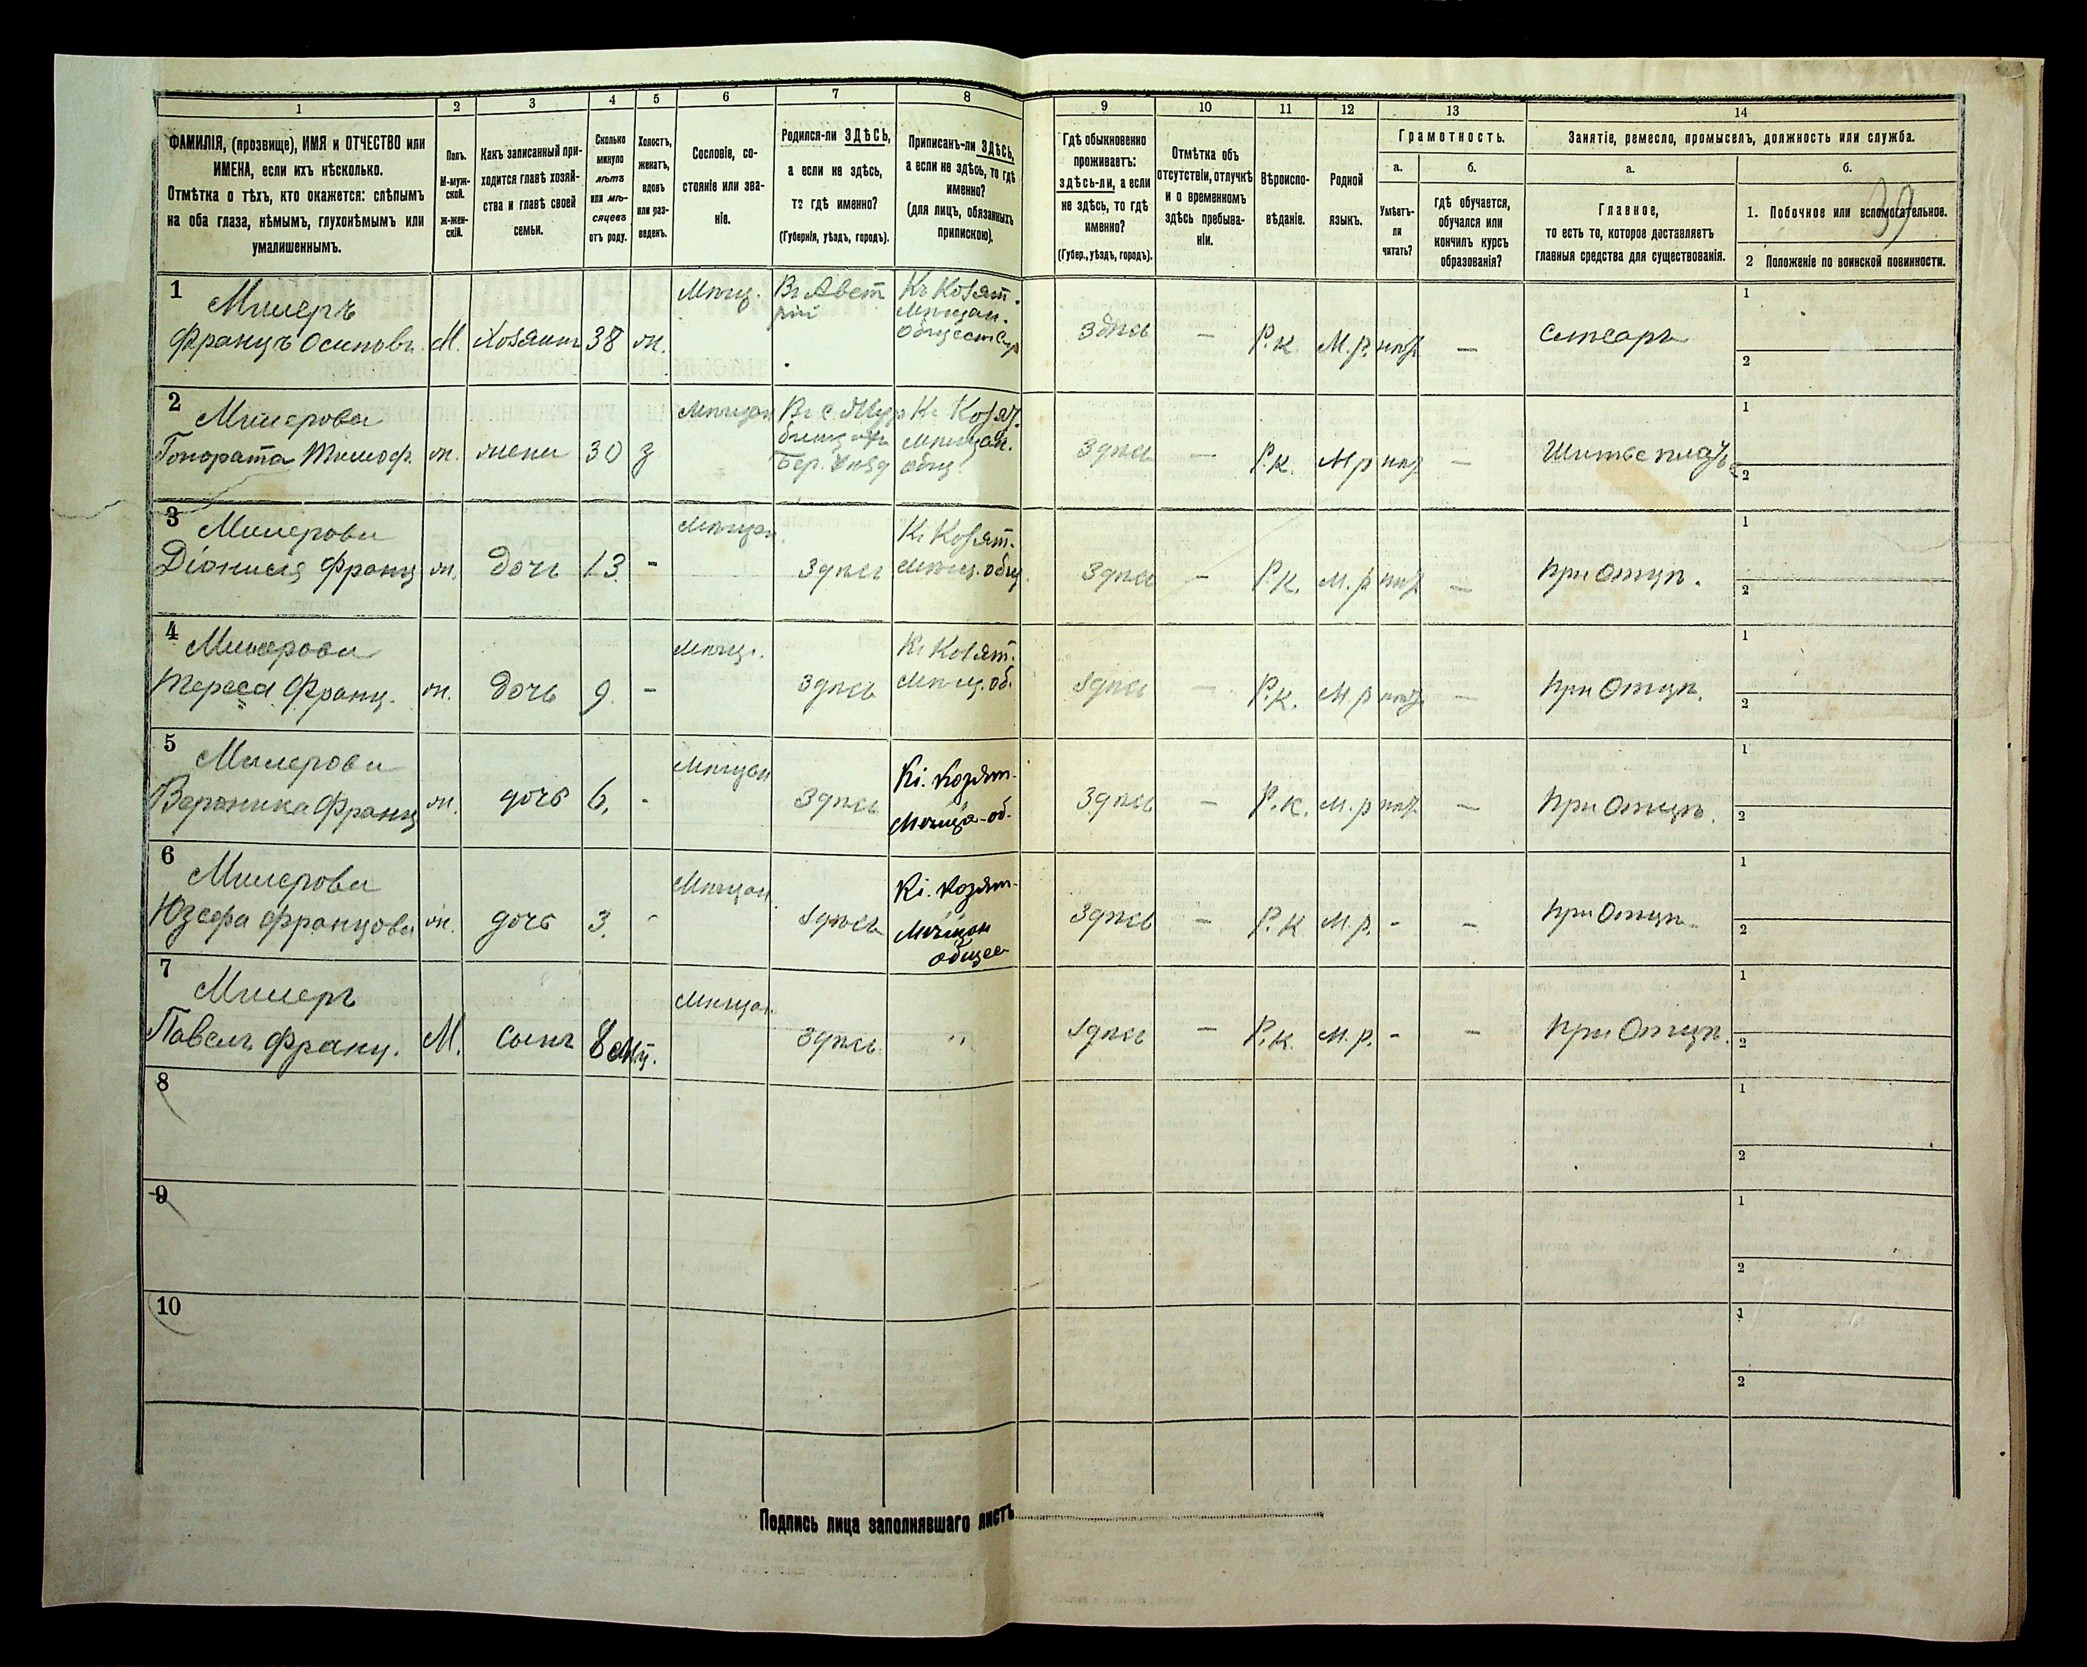 1 2 3 4 5 6 7 8 9 10 11 12 13 14
ФАМИЛІЯ, (прозвище), ИМЯ и ОТЧЕСТВО или
ИМЕНА, если ихъ нѣсколько.
Отмѣтка о тѣхъ, кто окажется: слѣпымъ
на оба глаза, нѣмымъ, глухонѣмымъ или
умалишеннымъ.
Полъ.
М-муж-
ской.
ж-жен-
скій.
Какъ записанный при-
ходится главѣ хозяй-
ства и главѣ своей
семьи.
Сколько
минуло
лѣтъ
или мѣ-
сяцевъ
отъ роду.
Холостъ,
женатъ,
вдовъ
или раз-
веденъ.
Сословіе, со-
стояніе или зва-
ніе.
Родился-ли ЗДѢСЬ,
а если не здѣсь,
то гдѣ именно?
(Губернія, уѣздъ, городъ).
Приписанъ-ли ЗДѢСЬ,
а если не здѣсь, то гдѣ
именно?
(для лицъ, обязанныхъ
припискою).
Гдѣ обыкновенно
проживаетъ:
здѣсь-ли, а если
не здѣсь, то гдѣ
именно?
(Губер., уѣздъ, городъ).
Отмѣтка объ
отсутствіи, отлучкѣ
и о временномъ
здѣсь пребыва-
ніи.
Вѣроиспо-
вѣданіе.
Родной
языкъ.
Грамотность.
а.
Умѣетъ-
ли
читать?
б.
гдѣ обучается,
обучался или
кончилъ курсъ
образованія?
Занятіе, ремесло, промыселъ, должность или служба.
а.
Главное,
то есть то, которое доставляетъ
главныя средства для существованія.
б.
1. Побочное или вспомогательное.
2 Положеніе по воинской повинности.
39
1 Милеръ Мѣщ. Въ Авст Къ Козят.
рій Мѣщан.
Францъ Осиповъ М. Хозяинъ 38 ж. Здѣсь — Р.к. М.р. нѣт — Слѣсарь
1
2
2 Милерова Мѣщан Въ с. Къ Козят.
Мѣщан.
Гонората ж. жена 30 з Бер. уѣзд общ. Здѣсь — Р.к. М.р нѣт — Шитье плать
1
2
3 Милерова Мѣщан. Къ Козят.
Діонисія Франц ж. дочь 13 - Здѣсь Мѣщ. общ. Здѣсь — Р.К. М.р нѣт — При Отцѣ.
1
2
4 Милерова Мѣщ. Къ Козят.
Тереса Франц. ж. дочь 9 - Здѣсь Мѣщ. об. Здѣсь — Р.К. М.р нѣт — При Отцѣ.
1
2
5 Милерова Мѣщан Кі. Козят.
Вероника Франц ж. дочь 6. - Здѣсь Мѣща-об. Здѣсь — Р.К. М.р нѣт — При Отцѣ.
1
2
6 Милерова Мѣщан. Кі. Козят.
Юзефа Францова ж. дочь 3. - Здѣсь Мѣщан Здѣсь — Р.К М.р. - — При Отцѣ
общес
1
2
7 Милеръ Мѣщан
Павелъ Франц. М. сынъ 8 мц. Здѣсь " Здѣсь — Р.к. М.р. - — При Отцѣ.
1
2
8
1
2
9
1
2
10
1
2
Подпись лица заполнявшаго листъ